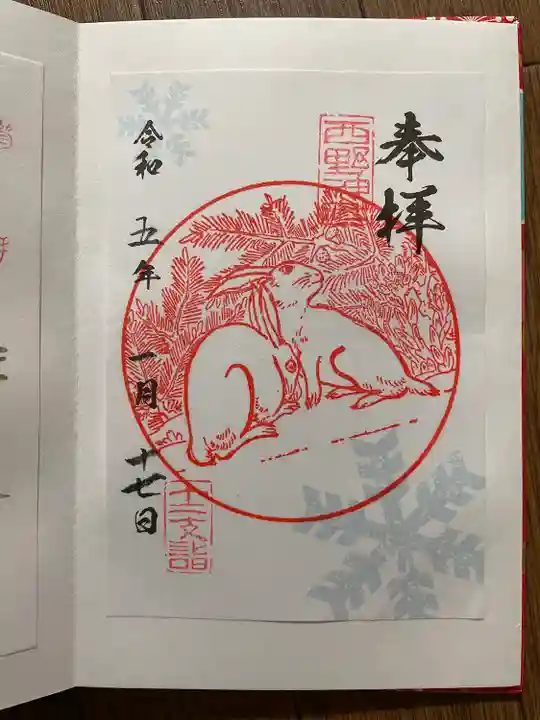 奉拝
西野神社
令和 五年 一月 十七日
十二支詣